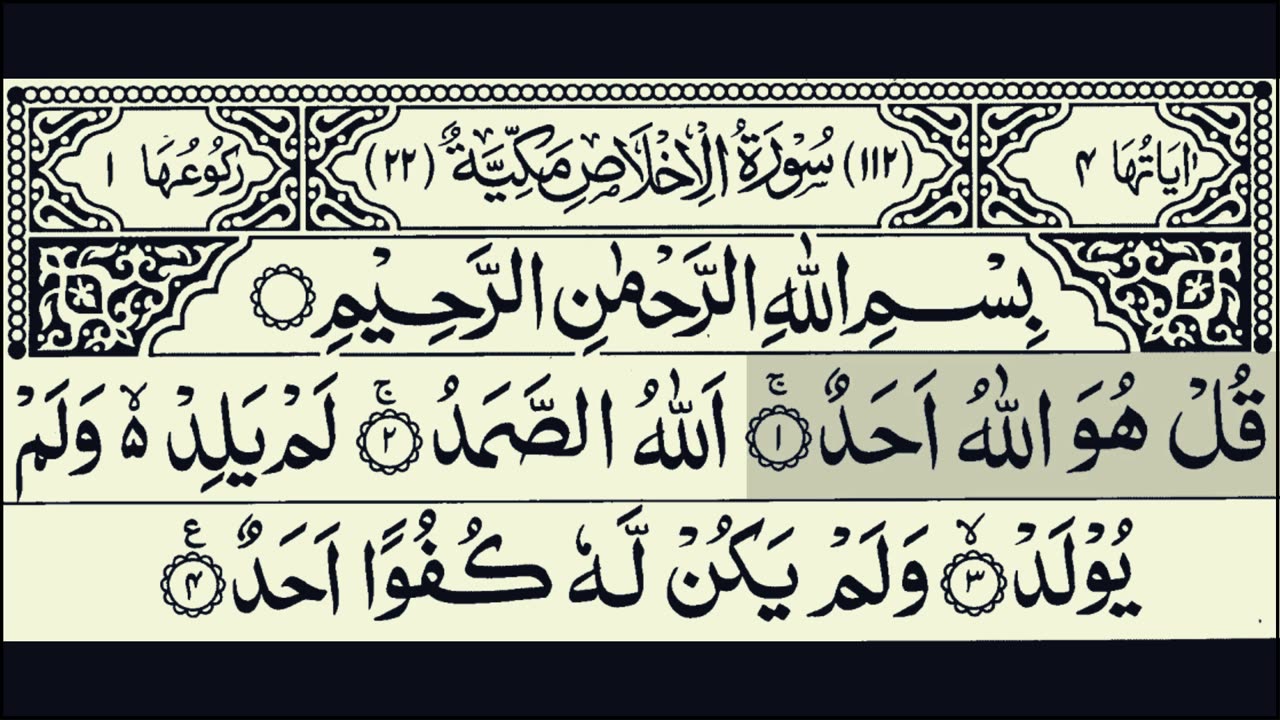 اٰيَاتُهَا ۴ (۱۱۲) سُوْرَةُ الْاِخْلَاصِ مَكِّيَّةٌ (۲۲) رُكُوْعُهَا ۱
بِسْمِ اللّٰهِ الرَّحْمٰنِ الرَّحِيْمِ
قُلْ هُوَ اللّٰهُ اَحَدٌ ۚ ۱ اَللّٰهُ الصَّمَدُ ۚ ۲ لَمْ يَلِدْ ۵ۙ وَلَمْ
يُوْلَدْ ۙ ۳ وَلَمْ يَكُنْ لَّهٗ كُفُوًا اَحَدٌ ع ۴